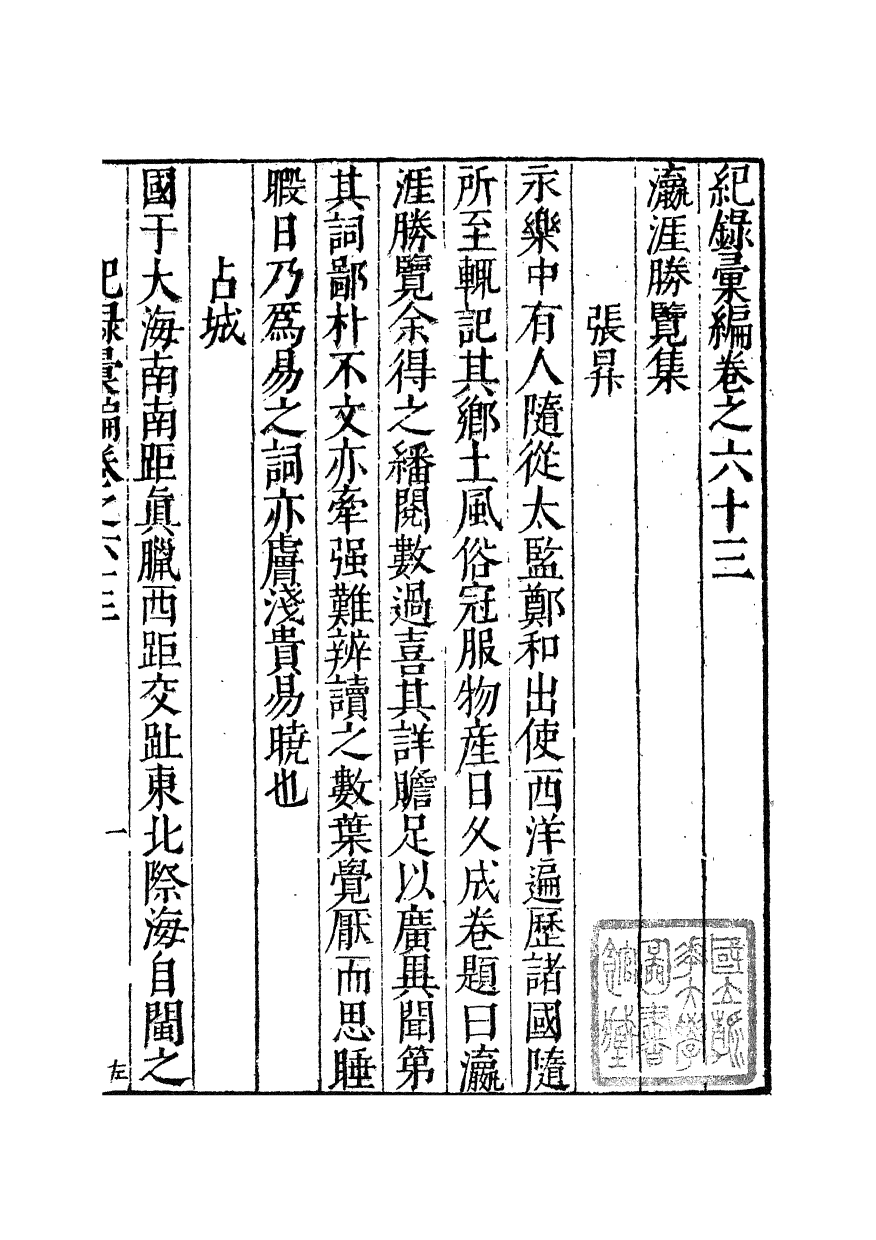 紀錄彙編卷之六十三
瀛涯勝覽集
張昇
永樂中有人隨從太監鄭和出使西洋遍歷諸國隨
所至輒記其鄉土風俗冠服物産日久成卷題曰瀛
涯勝覽余得之繙閱數過喜其詳贍足以廣異聞第
其詞鄙朴不文亦牽强難辨讀之數葉覺厭而思睡
暇日乃爲易之詞亦膚淺貴易曉也
占城
國于大海南南距眞臘西距交趾東北際海自閩之
紀録彙編卷之六十三
一
左
國立清
華大學
圖書
館藏